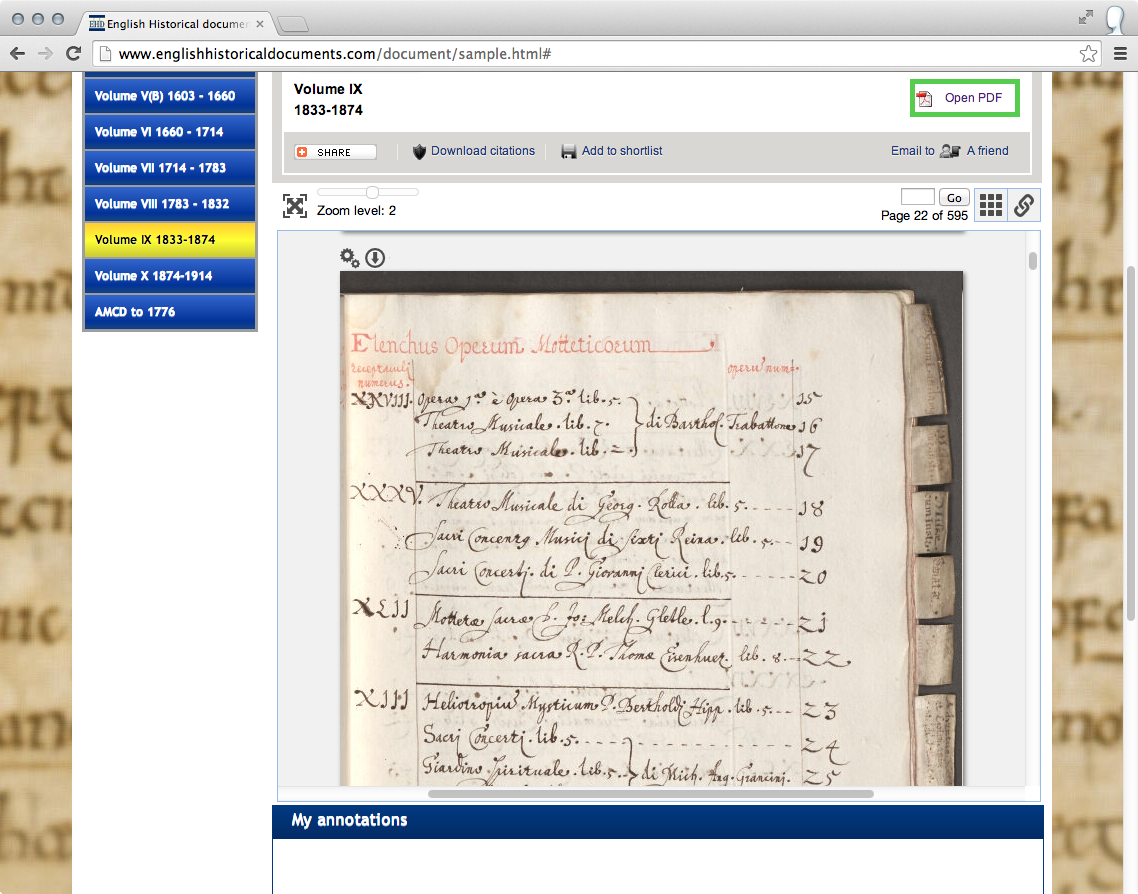 English Historical docume
www.englishhistoricaldocuments.com/document/sample.html#
Volume V(B) 1603 - 1660
Volume VI 1660 - 1714
Volume VII 1714 - 1783
Volume VIII 1783 - 1832
Volume IX 1833-1874
Volume X 1874-1914
AMCD to 1776
Volume IX
1833-1874
Open PDF
SHARE
Download citations
Add to shortlist
Email to A friend
Zoom level: 2
Go
Page 22 of 595
Elenchus Operum Motteticorum
numerus.
XXVIII. Opera 1.ª è Opera 3.ª lib. 5. 15
Theatro Musicale. lib. 7. di Barthol. Trabattone 16
Theatro Musicale. lib. 17
XXXV. Theatro Musicale di Georg. Rolla. lib. 5. - - - - - 18
Sacri Musicj di Reina. lib. 5. - - 19
Sacri Concertj. di P. Giovannj Clerici. lib. 5. - - - - - - 20
XLII Mottetæ sacræ Jo: Melch. Gletle. l. 9. - - - - - - 21
Harmonia sacra R. P. Thomæ Eisenhuet. lib. 8. - - 22
XIII Heliotropiũ Mysticum P. Bertholdj Hipp. lib. 5. - - - 23
Sacrj Concertj. lib. 5. - - - - - - - - - - - - 24
Giardino Spirituale. lib. 5. - - di Mich. Ang. Grancinj. 25
My annotations